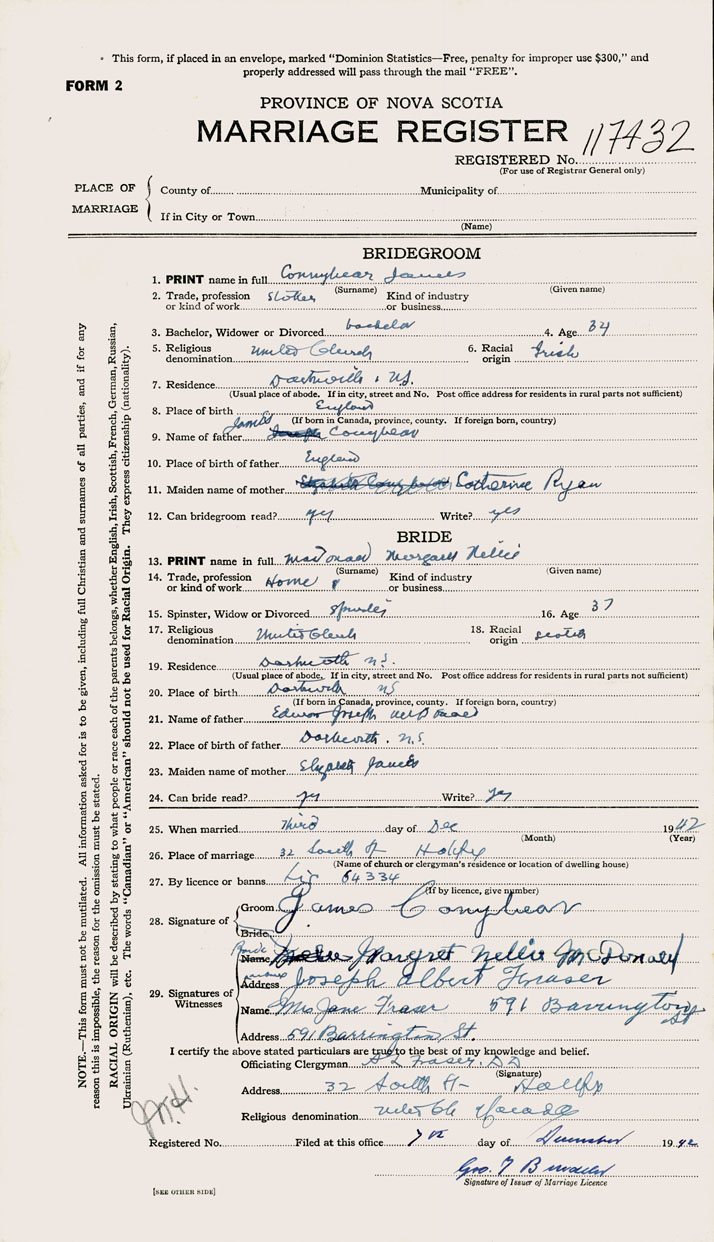 This form, if placed in an envelope, marked "Dominion Statistics—Free, penalty for improper use $300," and
properly addressed will pass through the mail "FREE".
FORM 2
PROVINCE OF NOVA SCOTIA
MARRIAGE REGISTER
117432
REGISTERED No.
(For use of Registrar General only)
PLACE OF MARRIAGE
County of Municipality of
If in City or Town
(Name)
BRIDEGROOM
1. PRINT name in full Connybear James
(Surname) (Given name)
2. Trade, profession or kind of work Kind of industry or business
3. Bachelor, Widower or Divorced bachelor 4. Age 34
5. Religious denomination United Church 6. Racial origin Irish
7. Residence Dartmouth N.S.
(Usual place of abode. If in city, street and No. Post office address for residents in rural parts not sufficient)
8. Place of birth England
(If born in Canada, province, county. If foreign born, country)
9. Name of father James Conybear
10. Place of birth of father England
11. Maiden name of mother Catherine Ryan
12. Can bridegroom read? yes Write? yes
BRIDE
13. PRINT name in full MacDonald Margaret Nellie
(Surname) (Given name)
14. Trade, profession or kind of work Home Kind of industry or business
15. Spinster, Widow or Divorced Spinster 16. Age 37
17. Religious denomination United Church 18. Racial origin Scotch
19. Residence Dartmouth N.S.
(Usual place of abode. If in city, street and No. Post office address for residents in rural parts not sufficient)
20. Place of birth Dartmouth NS
(If born in Canada, province, county. If foreign born, country)
21. Name of father Joseph McDonald
22. Place of birth of father Dartmouth. N.S.
23. Maiden name of mother Elizabeth James
24. Can bride read? yes Write? yes
25. When married Third day of Dec 1942
(Month) (Year)
26. Place of marriage 32 South St Halifax
(Name of church or clergyman's residence or location of dwelling house)
27. By licence or banns Lic 64334
(If by licence, give number)
28. Signature of
Groom James Conybear
Bride
Bride Name Margret Nellie McDonald
Address Joseph Albert Fraser
29. Signatures of Witnesses
Name Mrs Jane Fraser 591 Barrington St
Address 591 Barrington St.
I certify the above stated particulars are true to the best of my knowledge and belief.
Officiating Clergyman Fraser, DD
(Signature)
Address 32 South St Halifax
Religious denomination United Ch Canada
Registered No. Filed at this office 7th day of December 1942
Geo. T
Signature of Issuer of Marriage Licence
[SEE OTHER SIDE]
NOTE.—This form must not be mutilated. All information asked for is to be given, including full Christian and surnames of all parties, and if for any
reason this is impossible, the reason for the omission must be stated.
RACIAL ORIGIN will be described by stating to what people or race each of the parents belongs, whether English, Irish, Scottish, French, German, Russian,
Ukrainian (Ruthenian), etc. The words "Canadian" or "American" should not be used for Racial Origin. They express citizenship (nationality).